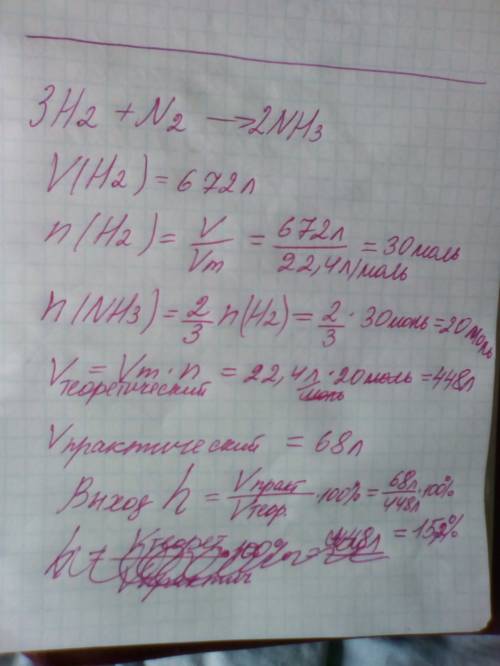 3H2 + N2 → 2NH3
V(H2) = 672л
n(H2) = V/Vm = 672л/22,4л/моль = 30моль
n(NH3) = 2/3 n(H2) = 2/3 · 30моль = 20моль
Vтеоретический = Vm · n = 22,4 л/моль · 20моль = 448л
Vпрактический = 68л
Выход h = Vпракт/Vтеор. · 100% = 68л/448л · 100%
= 15,2%